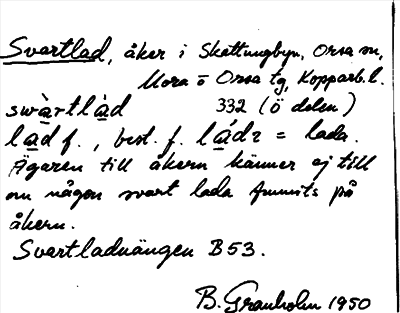 Svartlad, åker i Skattungbyn, Orsa sn,
Mora o Orsa tg, Kopparb. l.
swàrtlàd 332 (ö delen)
lad f., best. f. ládɪ = lada.
Ägaren till åkern känner ej till
om någon svart lada funnits på
åkern.
Svartladuängen B53.
B. Granholm 1950